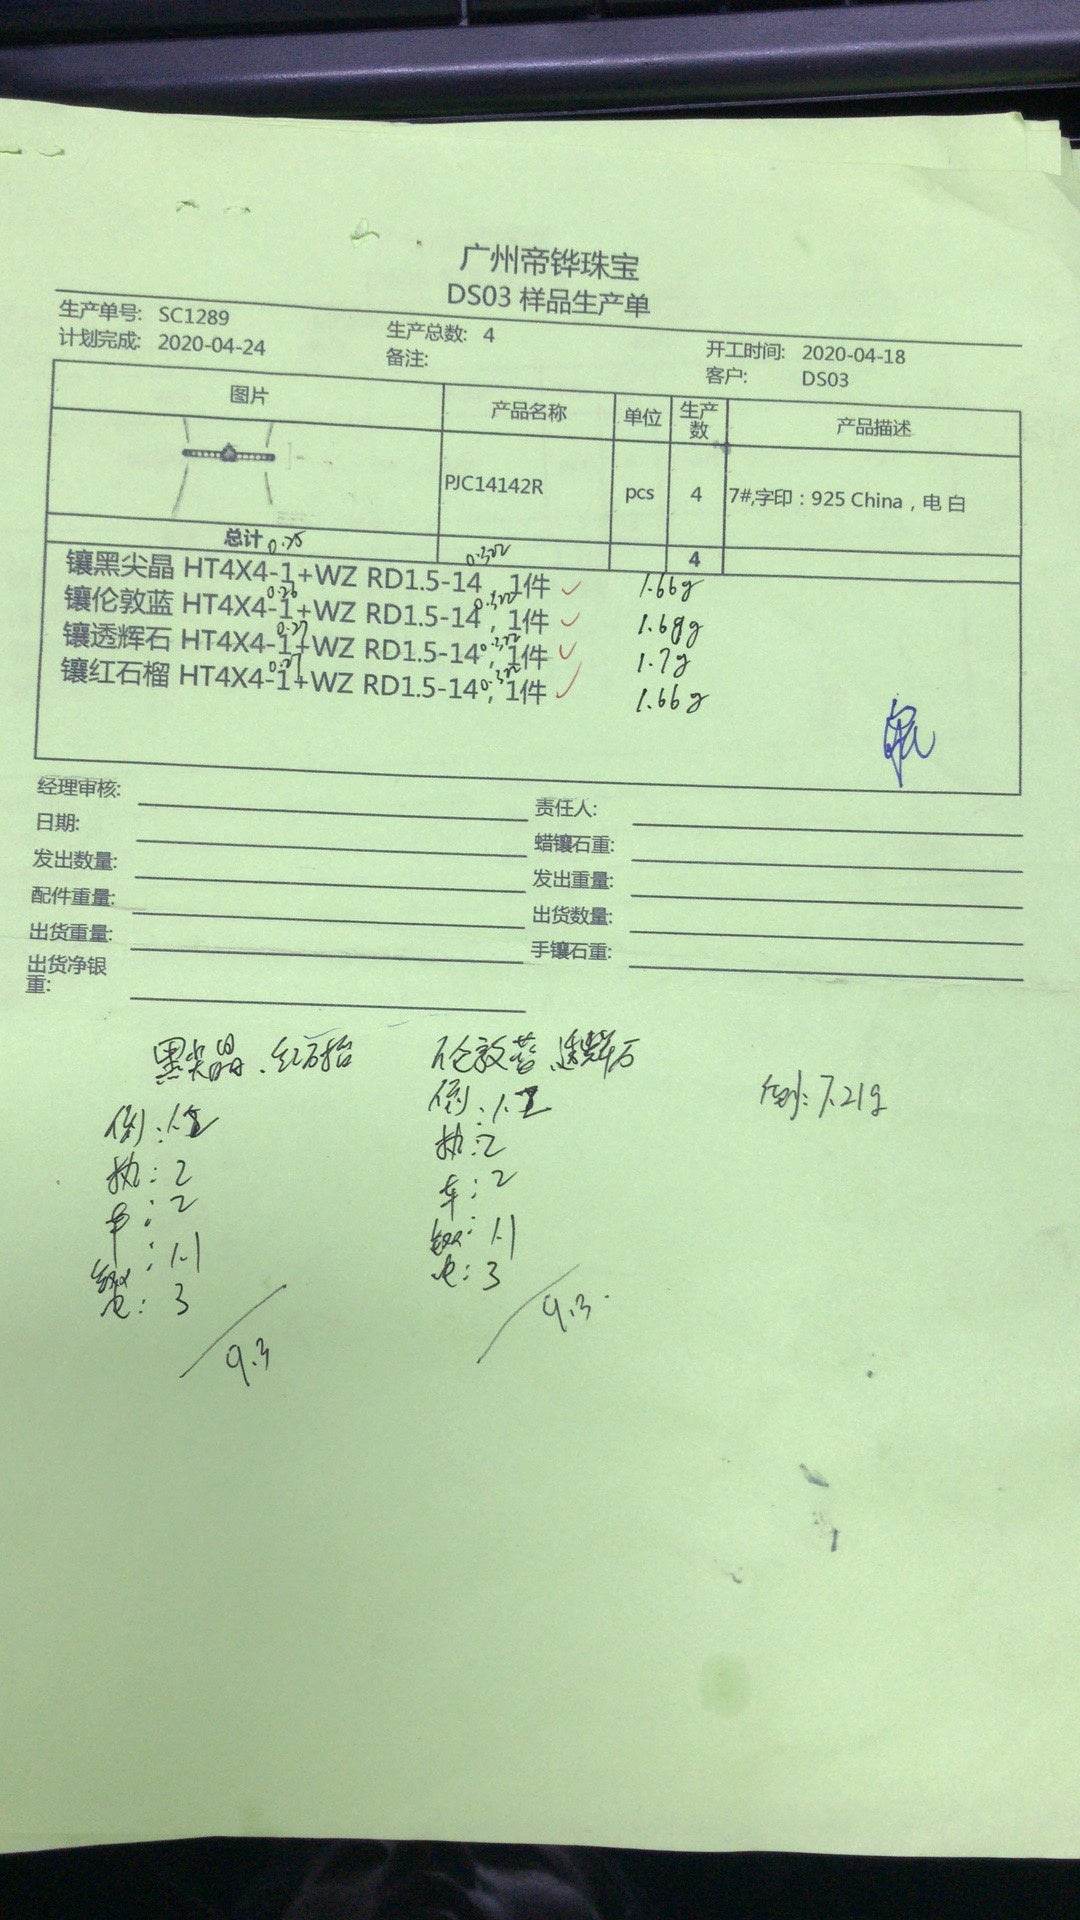 广州帝铧珠宝
DS03 样品生产单
生产单号: SC1289 生产总数: 4 开工时间: 2020-04-18
计划完成: 2020-04-24 备注: 客户: DS03
图片 产品名称 单位 生产数 产品描述
PJC14142R pcs 4 7#,字印：925 China，电 白
总计 4
0.25 0.322
镶黑尖晶 HT4X4-1+WZ RD1.5-14，1件 ✓ 1.66g
0.26 0.322
镶伦敦蓝 HT4X4-1+WZ RD1.5-14，1件 ✓ 1.68g
0.27 0.322
镶透辉石 HT4X4-1+WZ RD1.5-14，1件 ✓ 1.7g
0.27 0.322
镶红石榴 HT4X4-1+WZ RD1.5-14，1件 ✓ 1.66g
经理审核: 责任人:
日期: 蜡镶石重:
发出数量: 发出重量:
配件重量: 出货数量:
出货重量: 手镶石重:
出货净银重:
黑尖晶、红石榴
倒: 1.2
执: 2
车: 2
镶: 1.1
电: 3
9.3
伦敦蓝、透辉石
倒: 1.2
执: 2
车: 2
镶: 1.1
电: 3
9.3
倒: 7.21g